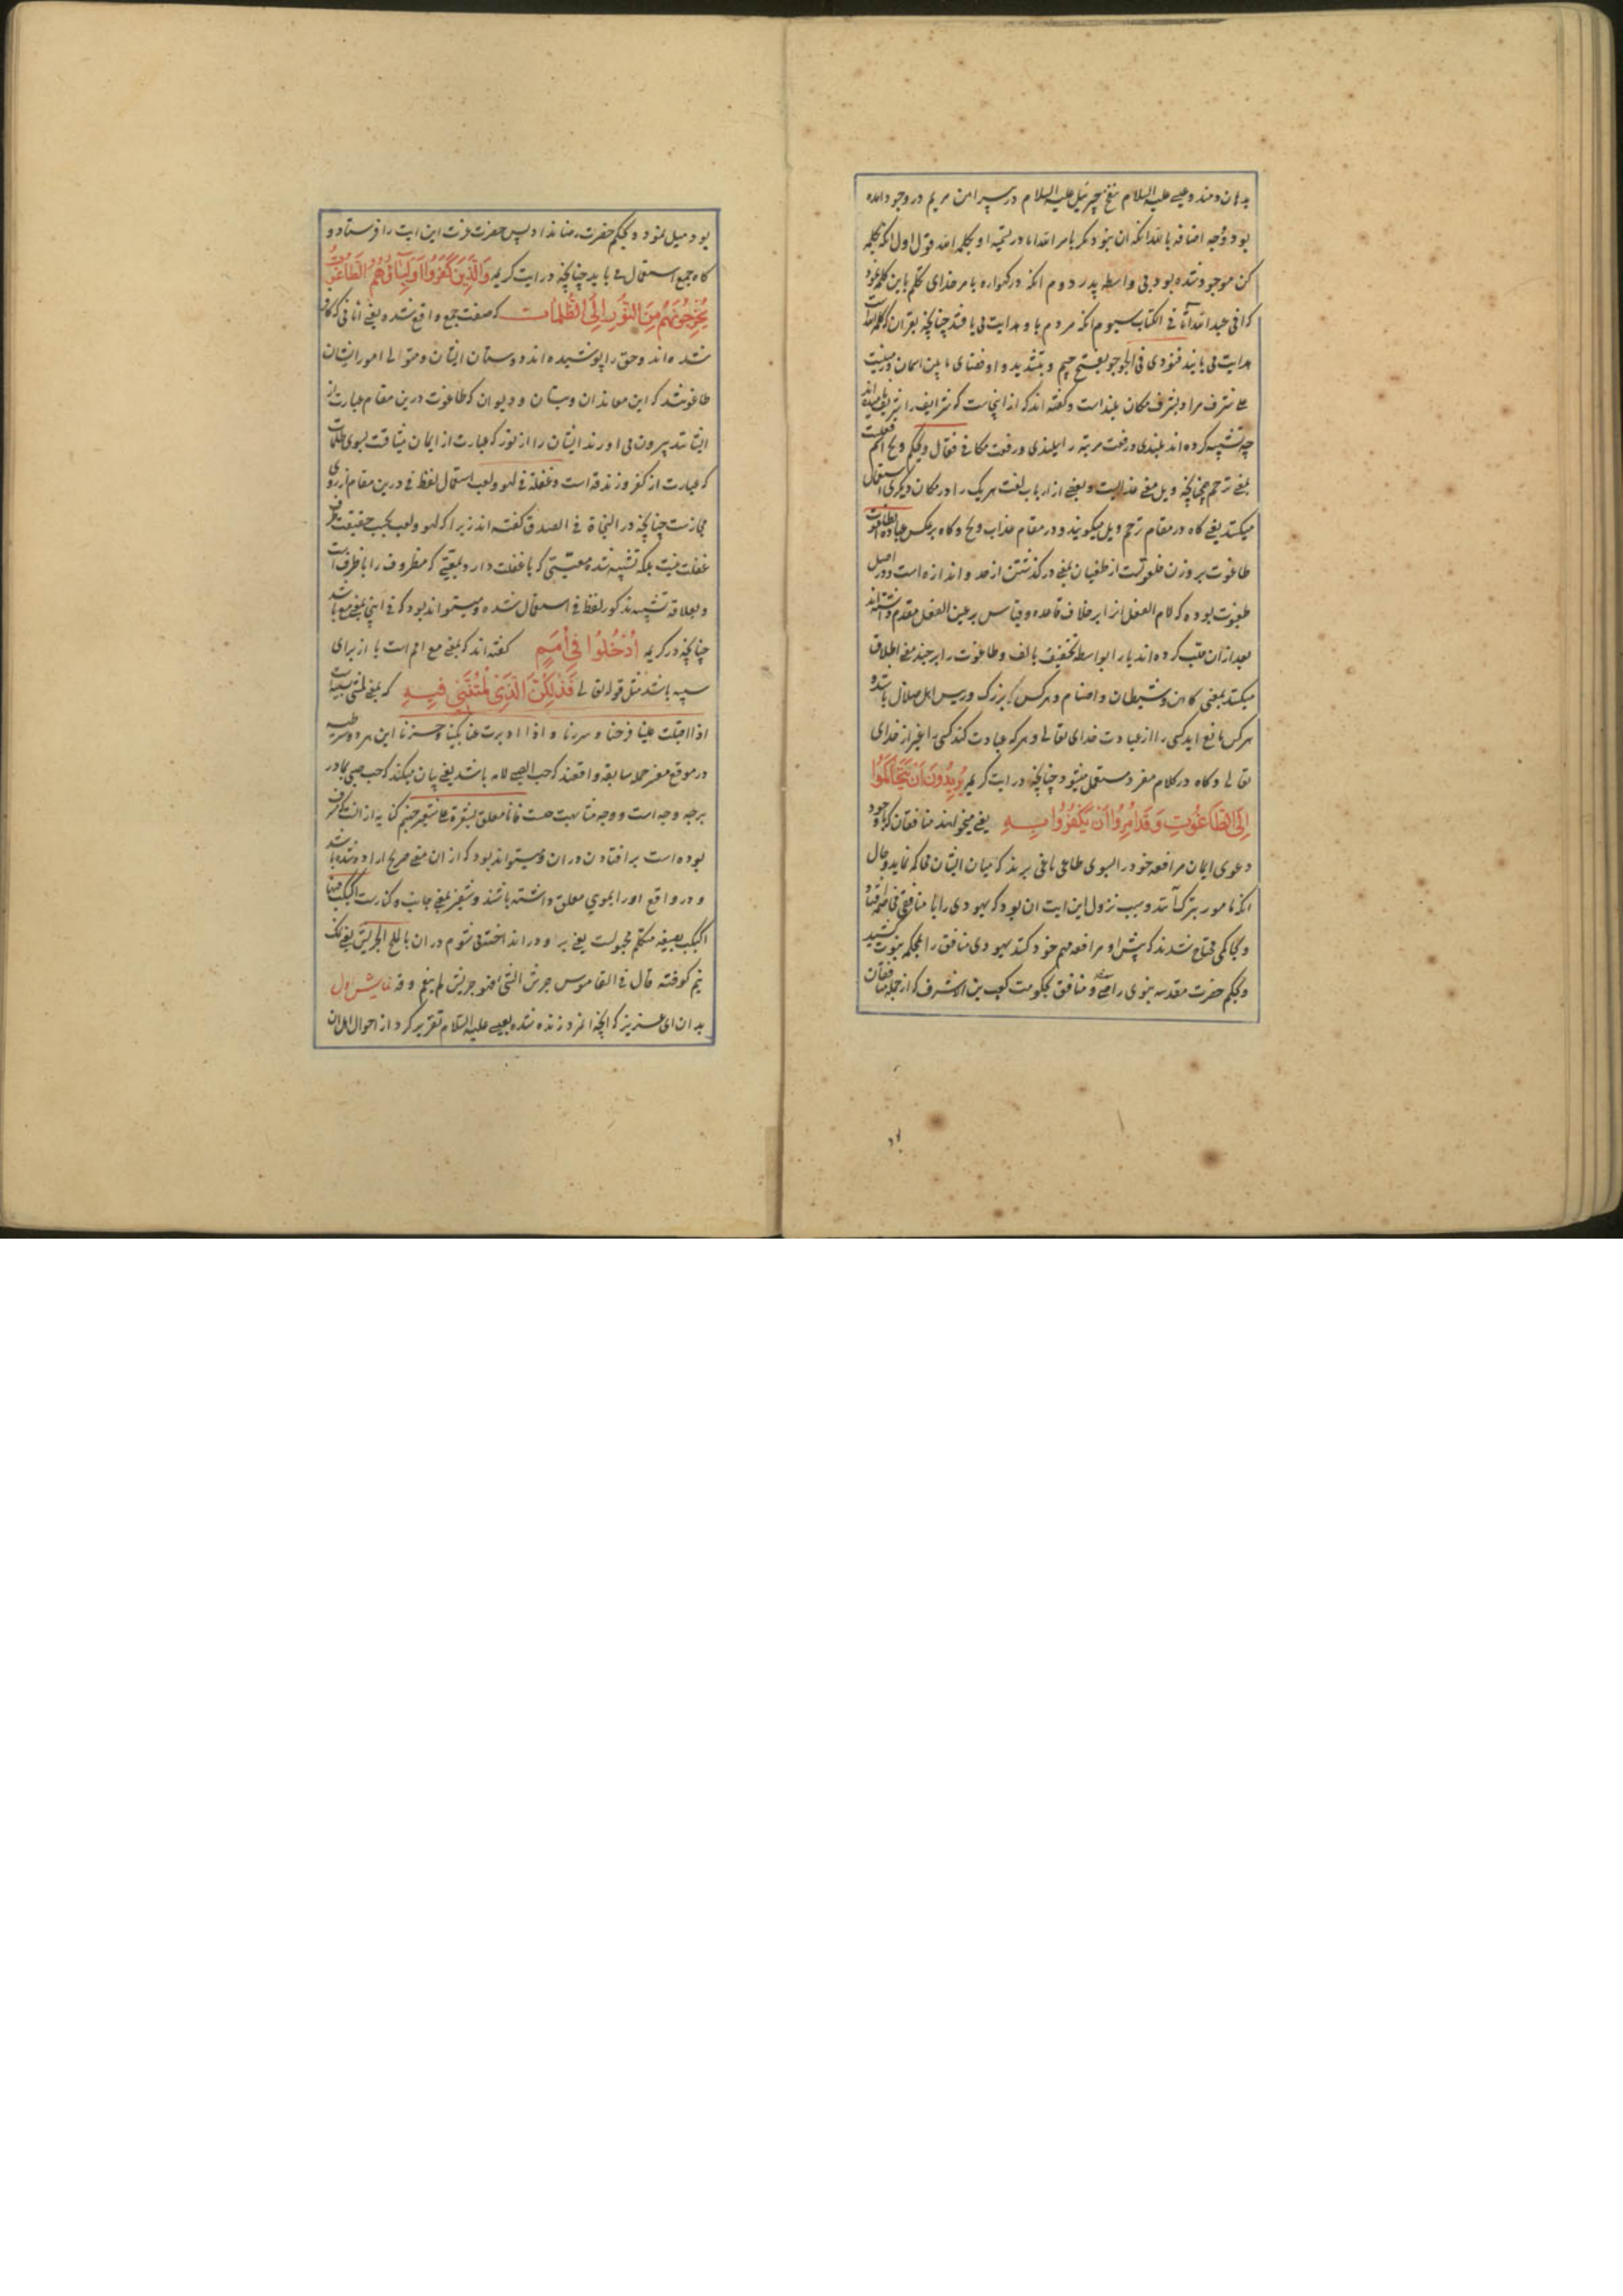 بدهان دمند و عیسی علیه السلام بنفخ جبرئیل علیه السلام در پیراهن مریم در وجود امده
بود و وجه اضافه بالله انکه ان نبود مکر بامر الله اما در تسمیه او بکلمه الله قول اول انکه بکلمه
کن موجود شده بود بی واسطه پدر دوم انکه در کهواره بامر خدای تکلم باین کلمه نمود
که انی عبد الله اتانی الکتاب سیوم انکه مردم باو هدایت می یافتند چنانچه بقران که کلام الله است
هدایت می یابند فنودی فی الجو جو بفتح جیم و بتشدید واو فضای ما بین اسمان و زمینست
علی شرف مراد بشرف مکان بلند است و کفته اند که از اینجاست که شرایف را شریف نامیده اند
چه تشبیه کرده اند بلندی و رفعت مرتبه را ببلندی و رفعت مکانی فقال ویحکم ویح اسم فعلست
بمعنی ترحم چنانچه ویل معنی عذابست و بعضی از ارباب لغت هر یک را در مکان دیکری استعمال
میکنند یعنی کاه در مقام ترحم ویل میکویند و در مقام عذاب ویح و کاه بر عکس عبادة الطاغوت
طاغوت بر وزن فلعوتست از طغیان بمعنی در کذشتن از حد و اندازه است و در اصل
طغیوت بوده که لام الفعل انرا بر خلاف قاعده و قیاس بر عین الفعل مقدم داشته اند
بعد ازان قلب کرده اند یا را بواسطه تخفیف بالف و طاغوت را بر چند معنی اطلاق
میکنند بمعنی کاهن و شیطان و اصنام و هر کس که بزرک و رییس اهل ضلال باشد و
هر کس مانع اید کسی را از عبادت خدای تعالی و هر که عبادت کند کسی را غیر از خدای
تعالی و کاه در کلام مفرد مستعمل میشود چنانچه در ایت کریمه یُرِیدُونَ اَنْ یَتَحَاکَمُوا
اِلَی الطَّاغُوتِ وَقَدْ اُمِرُوا اَنْ یَکْفُرُوا بِهِ یعنی میخواهند منافقان که با وجود
دعوی ایمان مرافعه خود را بسوی طاغی باغی برند که میان ایشان محاکمه نماید و حال
انکه مامور بترک آنند و سبب نزول این ایت ان بود که یهودی را با منافقی مخاصمه افتاد
و بحاکمی محتاج شدند که پیش او مرافعه مهم خود کنند یهودی منافق را بمحکمه نبوت کشید
و بحکم حضرت مقدسه نبوی راضی شد و منافق بحکومت کعب بن الاشرف که از جمله منافقان
بود میل نمود و بحکم حضرت رضا نداد پس حضرت عزت این ایت را فرستاد و
کاه جمع استعمال می یابد چنانچه در ایت کریمه وَالَّذِینَ کَفَرُوا اَوْلِیَاؤُهُمُ الطَّاغُوتُ
یُخْرِجُونَهُمْ مِنَ النُّورِ اِلَی الظُّلُمَاتِ که صفت جمع واقع شده یعنی انانی که کافر
شده اند و حق را پوشیده اند دوستان ایشان و متوالی امور ایشان
طاغوتند که این معاندان و بتان و دیوان که طاغوت درین مقام عبارت از
ایشانند بیرون می اورند ایشان را از نور که عبارت از ایمان میثاقست بسوی ظلمات
که عبارت از کفر و زندقه است و غفلة فی لهو و لعب استعمال لفظ فی درین مقام از روی
مجازست چنانچه در النجاة فی الصدق کفته اند زیرا که لهو و لعب بحسب حقیقت ظرف
غفلت نیست بلکه تشبیه شده معیتی که با غفلت دارد بمعیتی که مظروف را با ظرف است
و بعلاقه تشبیه مذکور لفظ فی استعمال شده و میتواند بود که فی اینجا بمعنی مع باشد
چنانچه در کریمه اُدْخُلُوا فِی اُمَمٍ کفته اند که بمعنی مع امم است یا از برای
سببیه باشد مثل قوله تعالی فَذٰلِکُنَّ الَّذِی لُمْتُنَّنِی فِیهِ که بمعنی لمتننی بسببه است
اذا اقبلت علینا فرحنا و سررنا و اذا ادبرت عنا بکینا و حزنا این هر دو شرطیه
در موقع مفسر جمله سابقه واقعند که حب الصبی لامه باشد یعنی بیان میکند که حب صبی بمادر
بر چه وجه است و وجه مناسبت چیست فانا معلق بشعرة علی شفیر جهنم کنایه از انست که مشرف
بوده است بر افتادن دران و میتواند بود که ازان معنی صریح اراده شده باشد
و در واقع او را بموی معلق داشته باشند و شفیر بمعنی جانب و کنارست اکبکب فیها
اکبکب بصیغه متکلم مجهولست یعنی برو در انداخته می شوم دران بالملح الجریش یعنی نمک
نیم کوفته قال فی القاموس جرش الشیء فهو جریش لم ینعم دقه نمایش اول
بدان ای عزیز که انچه انمرد زنده شده بعیسی علیه السلام تقریر کرد از احوال اهل ان